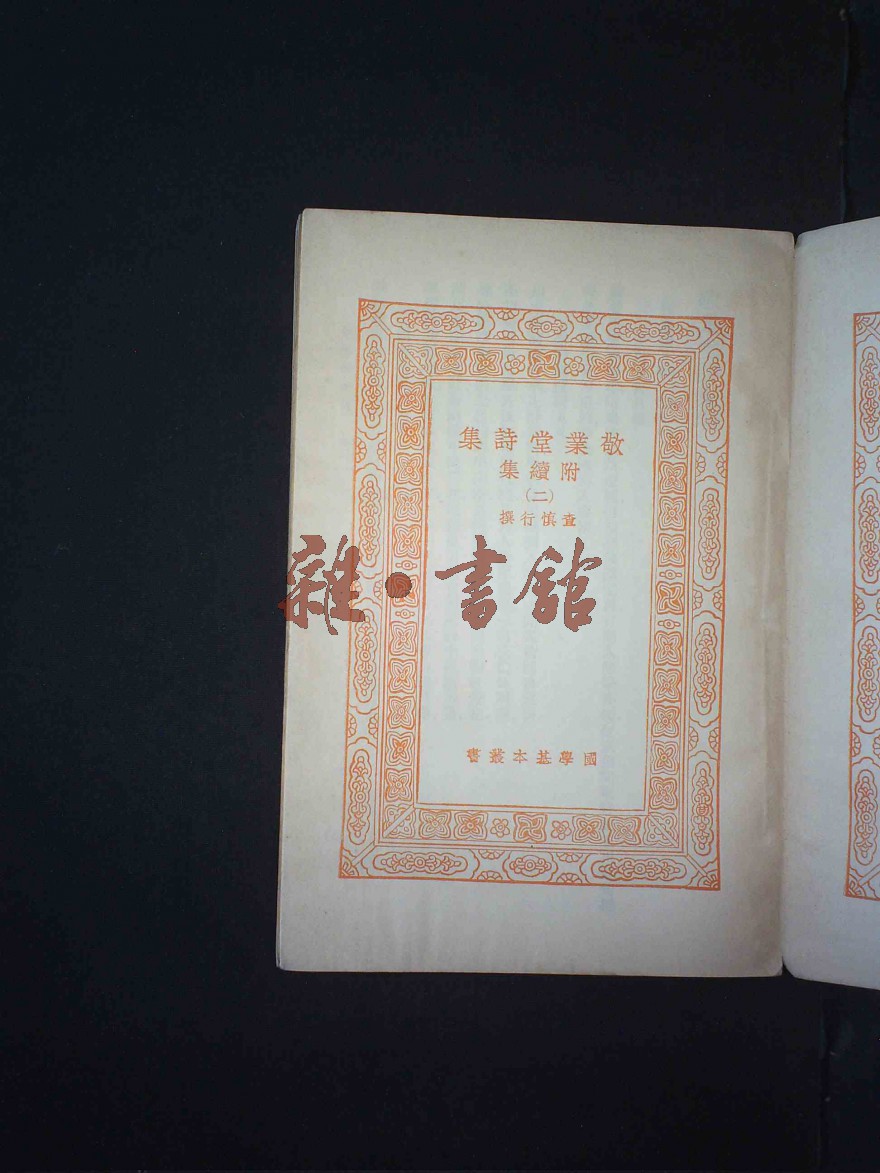 敬業堂詩集
附續集
(二)
查慎行撰
雜·書館
國學基本叢書